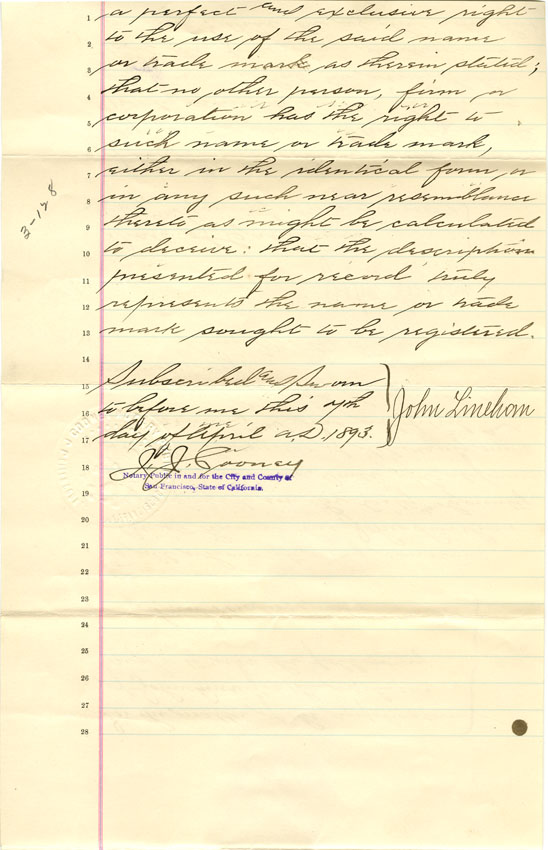 1 a perfect and exclusive right
2 to the use of the said name
3 or trade mark as therein stated;
4 that no other person, firm or
5 corporation has the right to
6 such name or trade mark,
7 either in the identical form, or
8 in any such near resemblance
9 thereto as might be calculated
10 to deceive: that the description
11 presented for record truly
12 represents the name or trade
13 mark sought to be registered.
14
15 Subscribed and Sworn
16 to before me this 7th
17 day of April A.D. 1893.
John Linehan
18 J. J. Rooney
Notary Public in and for the City and County of
San Francisco, State of California.
19
20
21
22
23
24
25
26
27
28